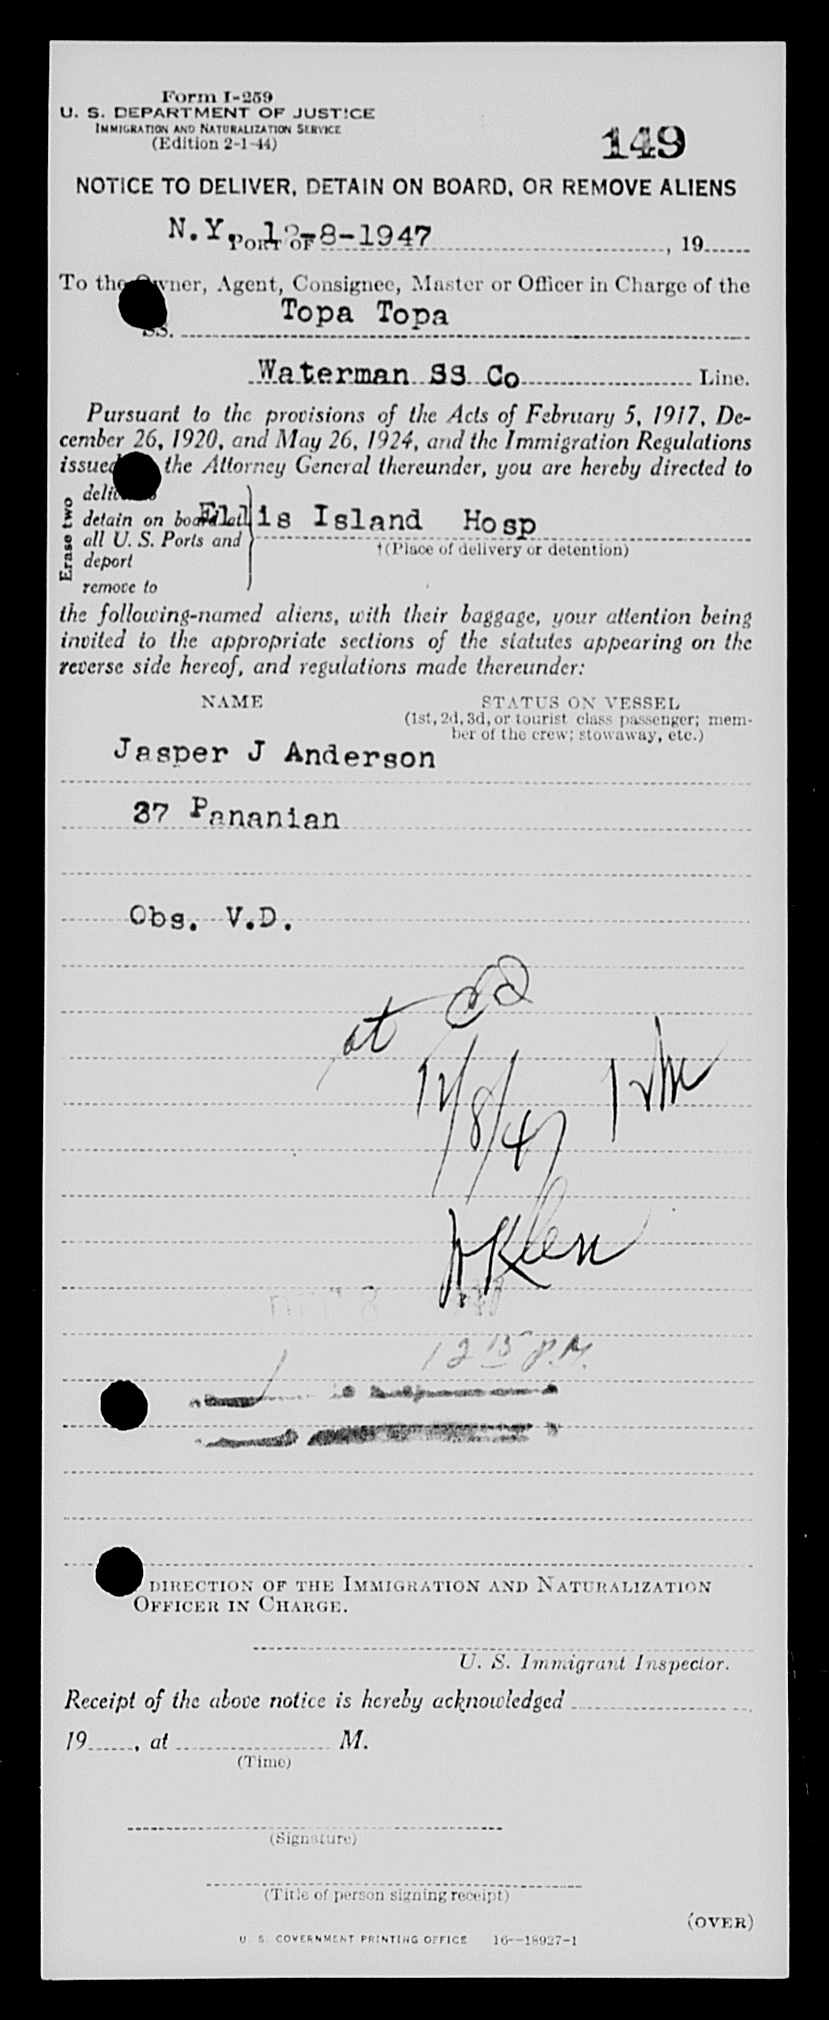 Form I-259
U. S. DEPARTMENT OF JUSTICE
IMMIGRATION AND NATURALIZATION SERVICE
(Edition 2-1-44)
149
NOTICE TO DELIVER, DETAIN ON BOARD, OR REMOVE ALIENS
N.Y. 12-8-1947
PORT OF , 19
To the Owner, Agent, Consignee, Master or Officer in Charge of the
SS. Topa Topa
Waterman SS Co Line.
Pursuant to the provisions of the Acts of February 5, 1917, De-
cember 26, 1920, and May 26, 1924, and the Immigration Regulations
issued the Attorney General thereunder, you are hereby directed to
Erase two
detain on board at
all U. S. Ports and
deport
remove to
Ellis Island Hosp
†(Place of delivery or detention)
the following-named aliens, with their baggage, your attention being
invited to the appropriate sections of the statutes appearing on the
reverse side hereof, and regulations made thereunder:
NAME STATUS ON VESSEL
(1st, 2d, 3d, or tourist class passenger; mem-
ber of the crew; stowaway, etc.)
Jasper J Anderson
37 Pananian
Obs. V.D.
at
12/8/47
12 15 P.M.
DIRECTION OF THE IMMIGRATION AND NATURALIZATION
OFFICER IN CHARGE.
U. S. Immigrant Inspector.
Receipt of the above notice is hereby acknowledged
19 , at M.
(Time)
(Signature)
(Title of person signing receipt)
(OVER)
U. S. GOVERNMENT PRINTING OFFICE 16—18927-1